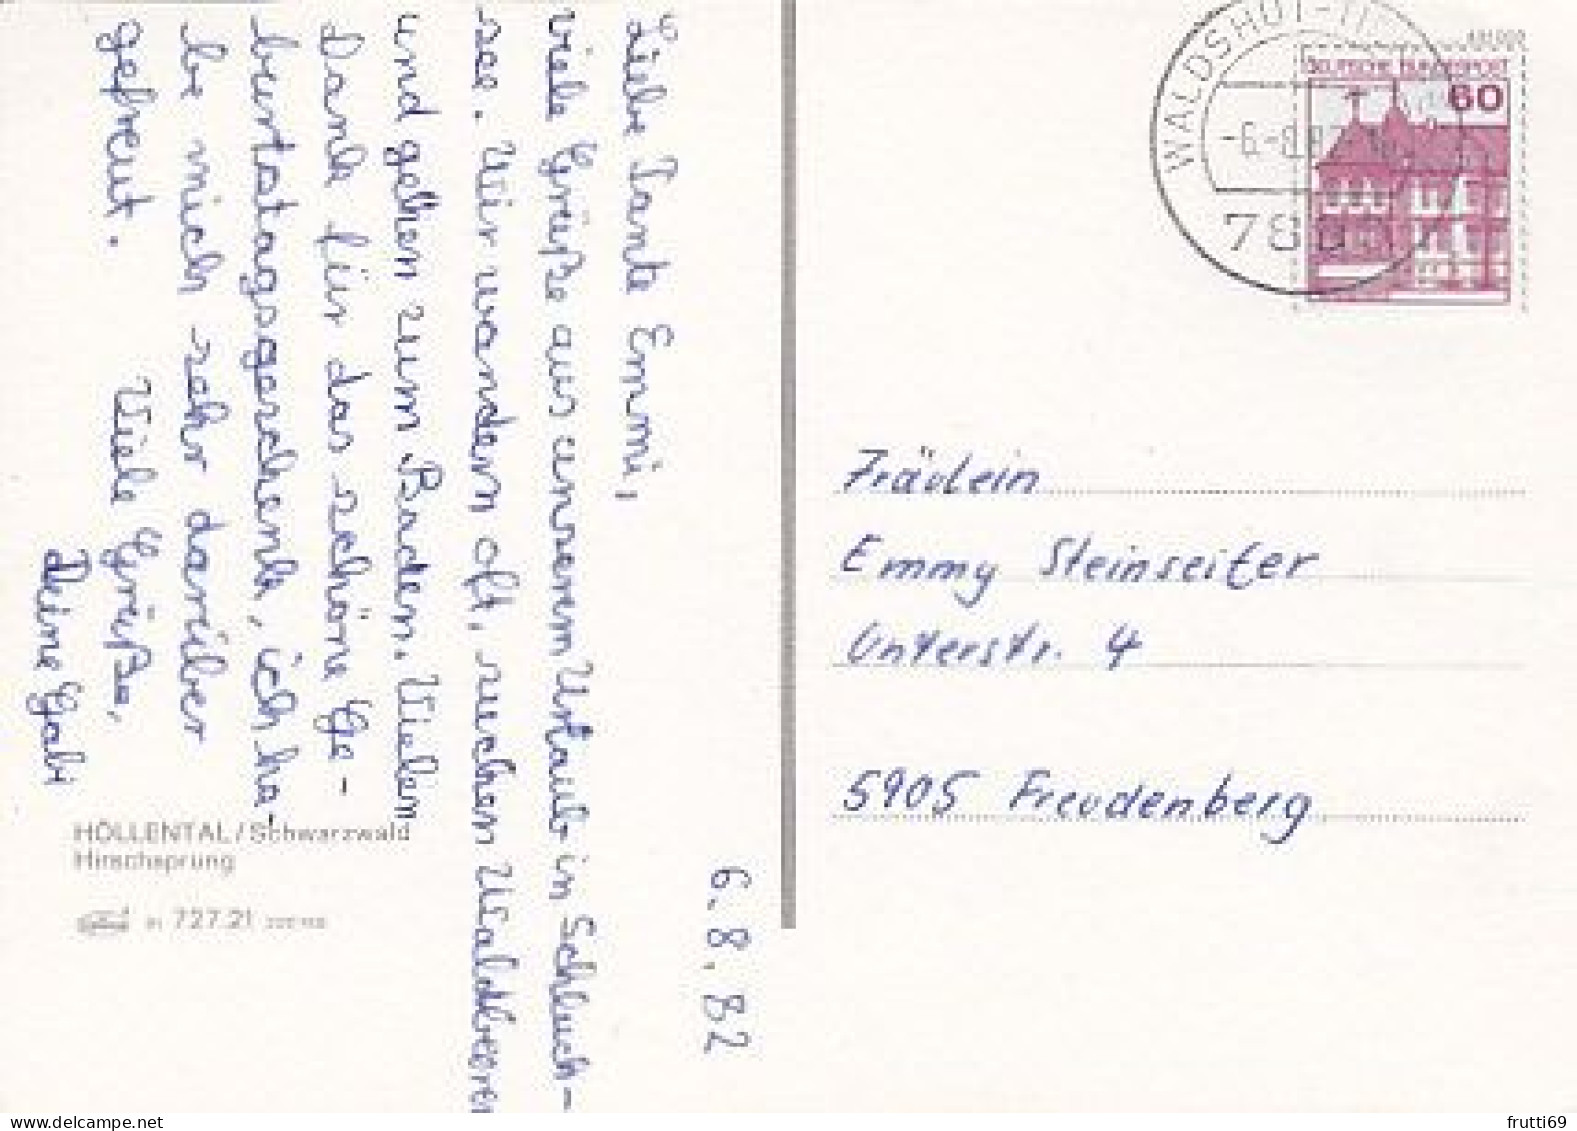 6.8.82
Liebe Tante Emmi,
viele Grüße aus unserem Urlaub in Schluch-
see. Wir wandern oft, suchen Waldbeeren
und gehen zum Baden. Vielen
Dank für das schöne Ge-
burtstagsgeschenk, ich ha-
be mich sehr darüber
gefreut.
Viele Grüße,
Deine Gabi
HÖLLENTAL/Schwarzwald
Hirschsprung
727.21
WALDSHUT-TI
-6.-8.82
DEUTSCHE BUNDESPOST
60
Fräulein
Emmy Steinseifer
Unterstr. 4
5905 Freudenberg
frutti69